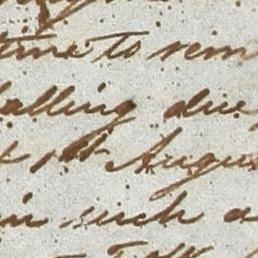 time to rem
falling due
1st Augus
in such a